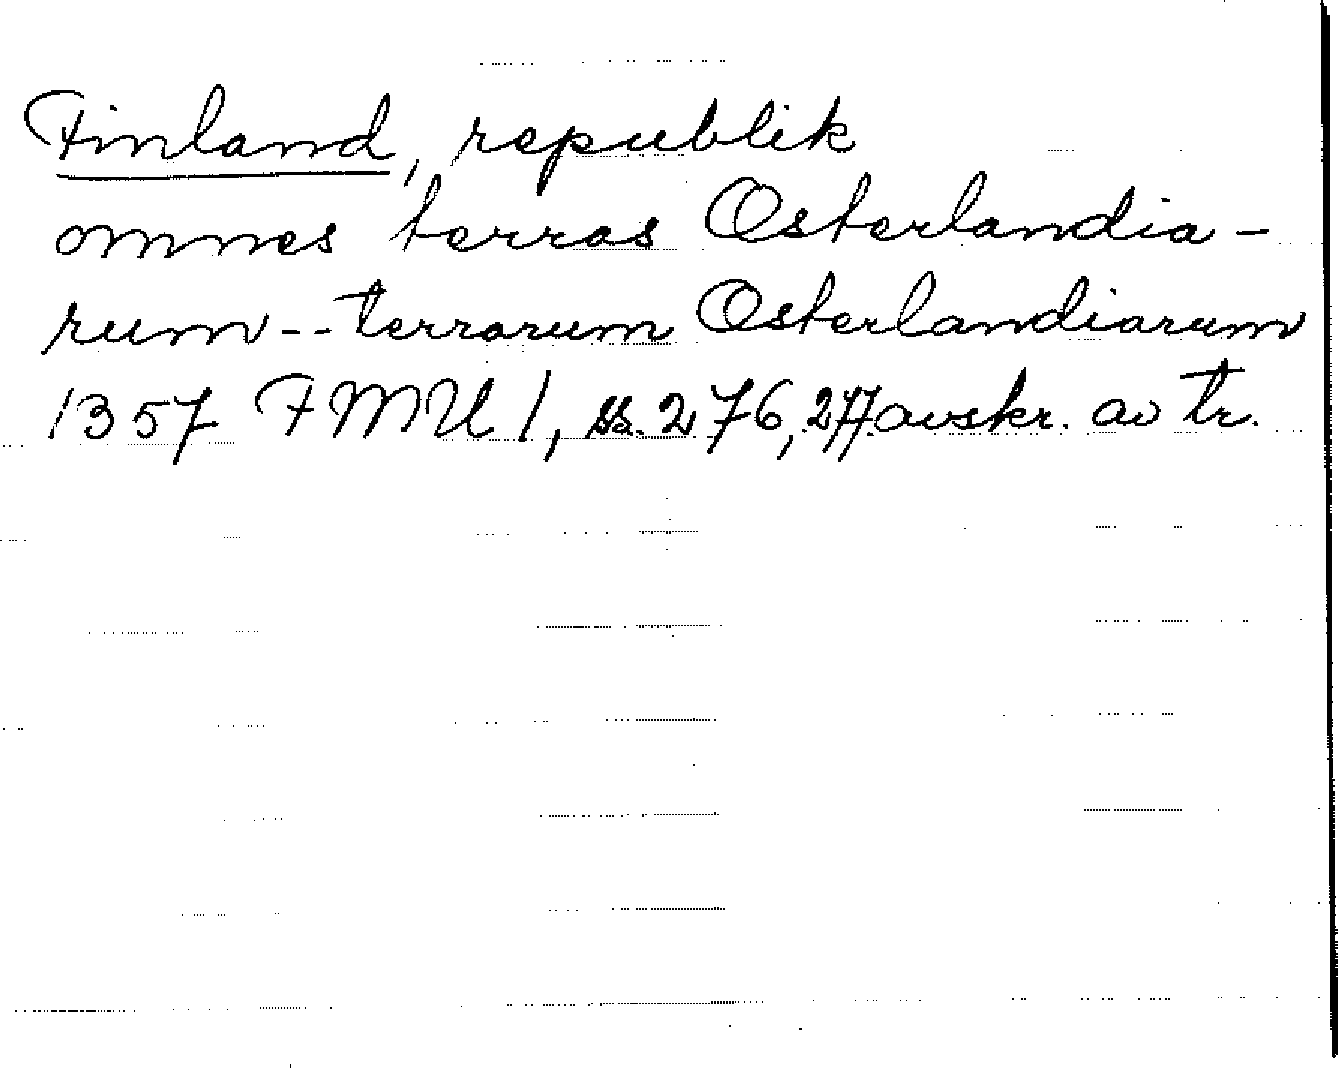 Finland, republik
omnes terras Osterlandia-
rum--terrarum Osterlandiarum
1357 FMU 1, ss. 276, 277. avskr. av tr.